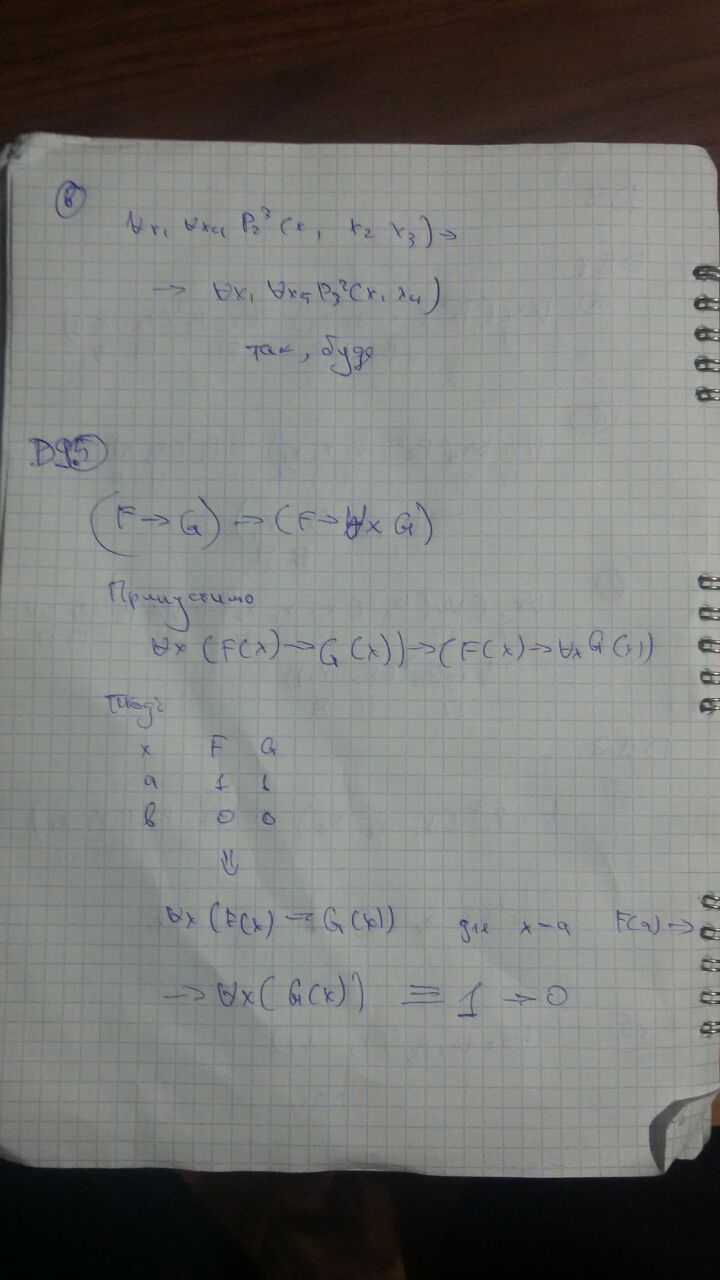 в
∀x₁ ∀x₄ P₂³(x₁ x₂ x₃) →
→ ∀x₁ ∀x₅ P₃²(x₁ x₄)
так, буде
D95
(F → G) → (F → ∀x G)
Припустимо
∀x (F(x) → G(x)) → (F(x) → ∀x G(x))
Тоді
x F G
a 1 1
b 0 0
⇓
∀x (F(x) → G(x)) для x = a F(a) →
→ ∀x (G(x)) ≡ 1 → 0